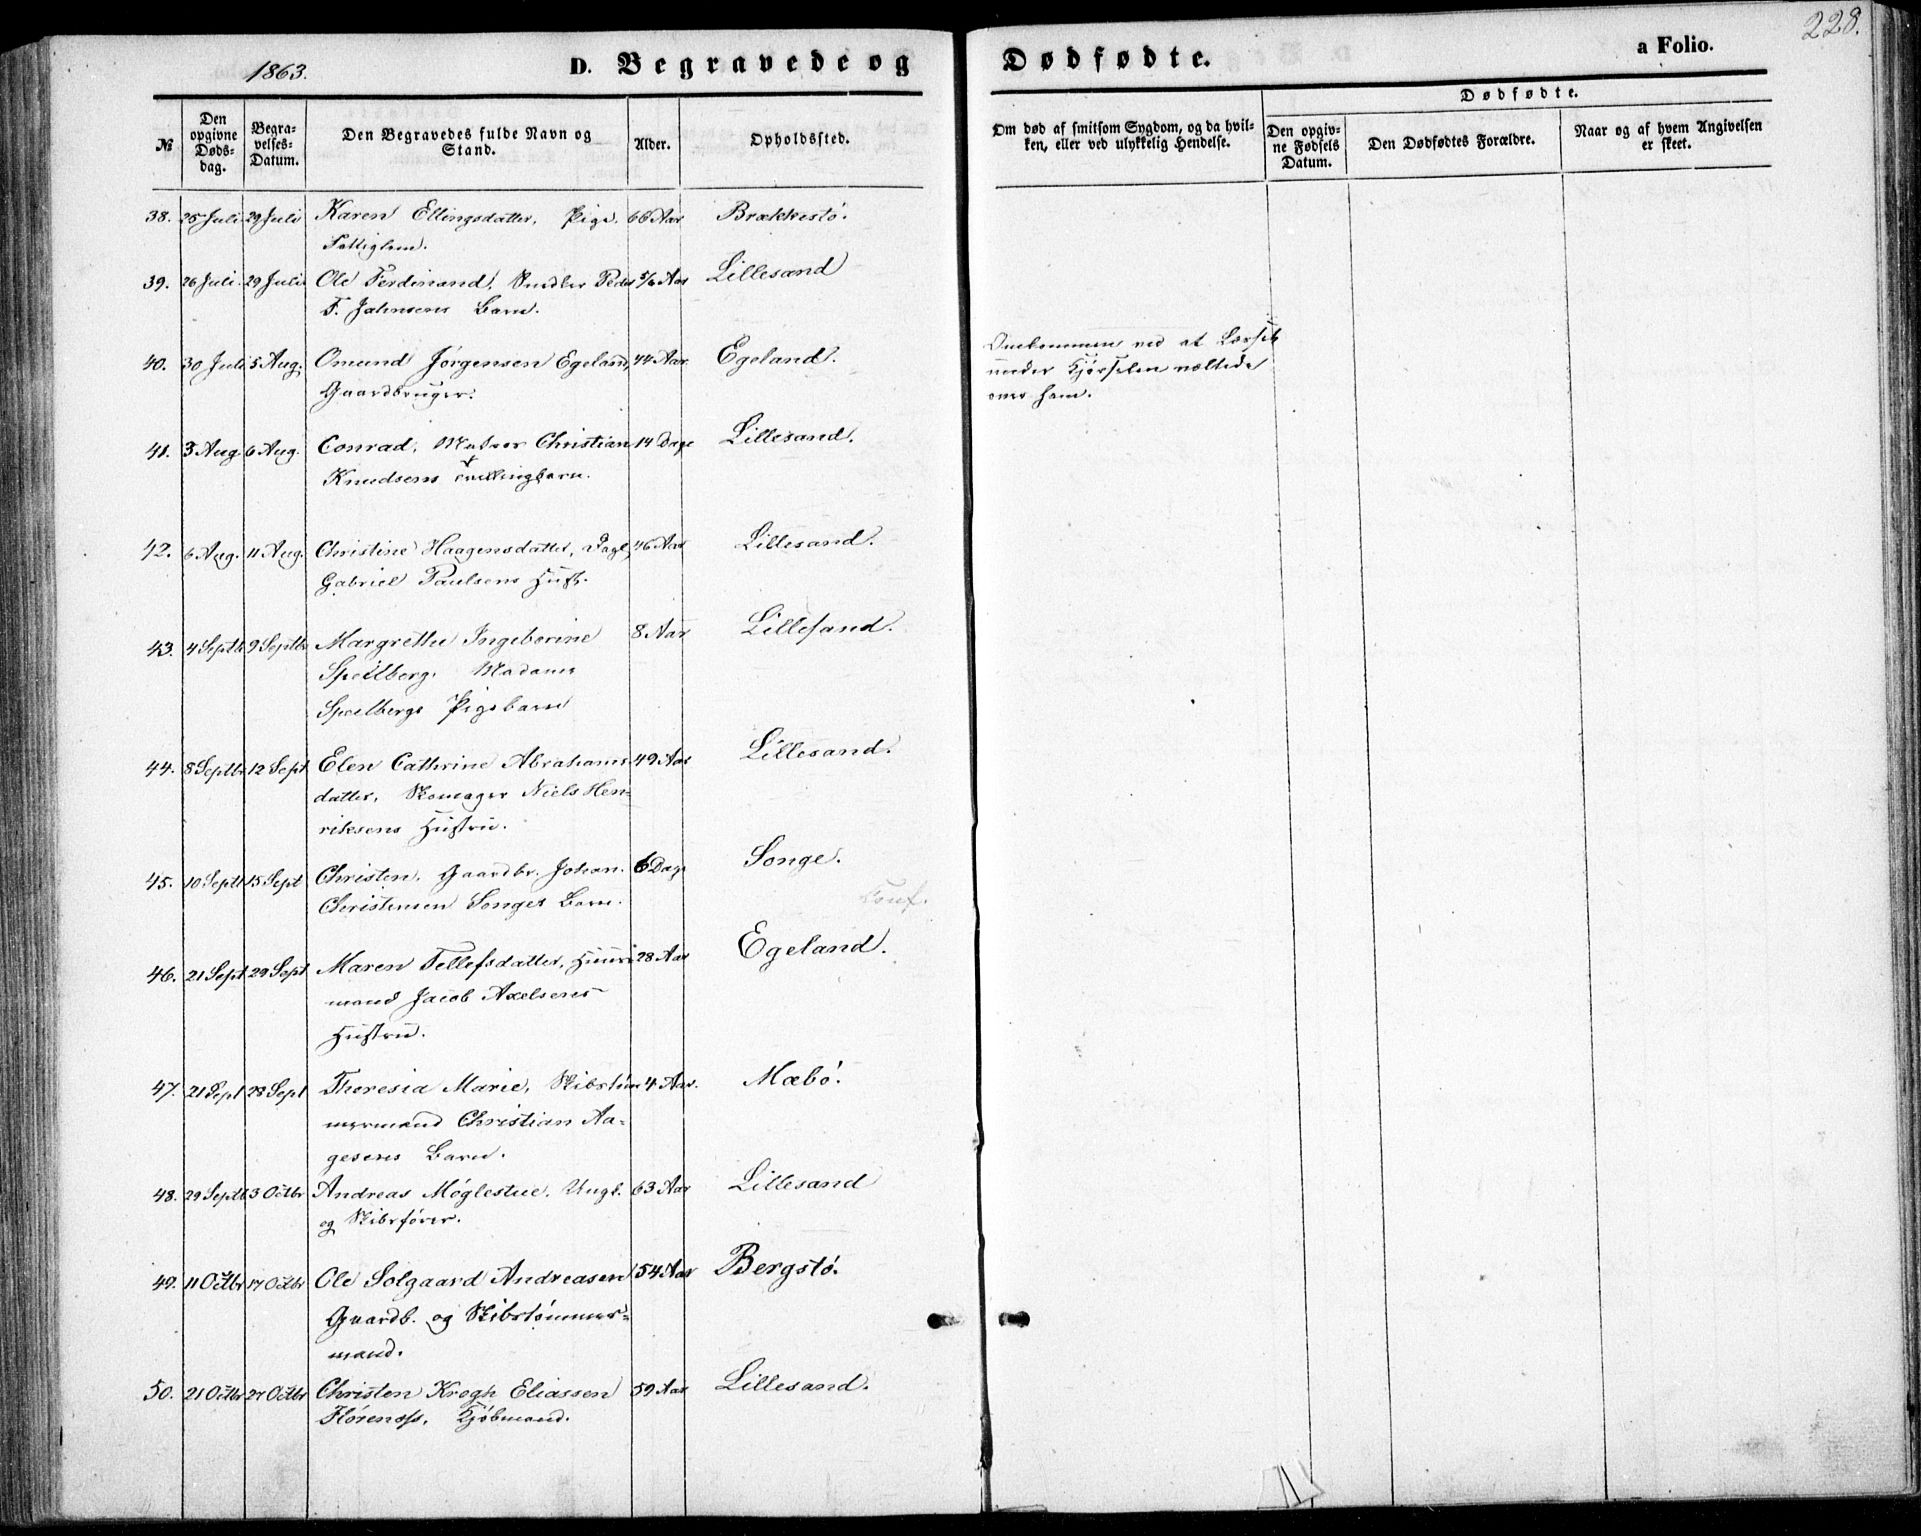 228.
1863.
D. Begravede og Dødfødte.
a Folio.
№
Den opgivne Døds-dag.
Begra-velses-Datum.
Den Begravedes fulde Navn og Stand.
Alder.
Opholdssted.
Om død af smitsom Sygdom, og da hvil-ken, eller ved ulykkelig Hendelse.
Dødfødte.
Den opgiv-ne Fødsels Datum.
Den Dødfødtes Forældre.
Naar og af hvem Angivelsen er skeet.
38. 25 Juli 29 Juli Karen Ellingsdatter, Pige. 66 Aar Brækkestø.
Fattiglem.
39. 26 Juli. 29 Juli Ole Ferdinand, Snedker Peder 5/6 Aar Lillesand
F. Jahnsens Barn.
40. 30 Juli 5 Aug. Omund Jørgensen Egeland, 44 Aar Egeland. Omkommen ved at Læsset
Gaardbruger. under Kjørselen væltede
over ham.
41. 3 Aug. 6 Aug. Conrad, Matros Christian 14 Dage Lillesand.
Knudsens Tvillingbarn.
42. 6 Aug. 11 Aug. Christine Haagensdatter, Dagl. 46 Aar Lillesand.
Gabriel Paulsens Hust.
43. 4 Septb 9 Septbr Margrethe Ingeborine 8 Aar Lillesand.
Speilberg, Madame
Speilbergs Pigebarn
44. 8 Septbr 12 Sept Elen Cathrine Abrahams 49 Aar Lillesand.
datter, Skomager Niels Hen-
riksens Hustru.
45. 10 Septb 15 Sept Christen, Gaardbr. Johan 6 Dage Songe.
Christensen Songes Barn.
46. 21 Sept 29 Sept Maren Tellefsdatter, Huus 28 Aar Egeland.
mand Jacob Axelsens
Hustru.
47. 21 Sept 28 Sept Theresia Marie, Skibstøm 4 Aar. Mæbø.
mermand Christian Aa-
gesens Barn.
48. 29 Septb 3 Octbr Andreas Møglestue, Ungk. 63 Aar Lillesand
og Skibsfører.
49. 11 Octbr 17 Octbr Ole Solgaard Andreasen 54 Aar Bergstø.
Gaardb. og Skibstømmer-
mand.
50. 21 Octbr 27 Octbr Christen Krogh Eliassen 59 Aar Lillesand.
Kjøbmand.